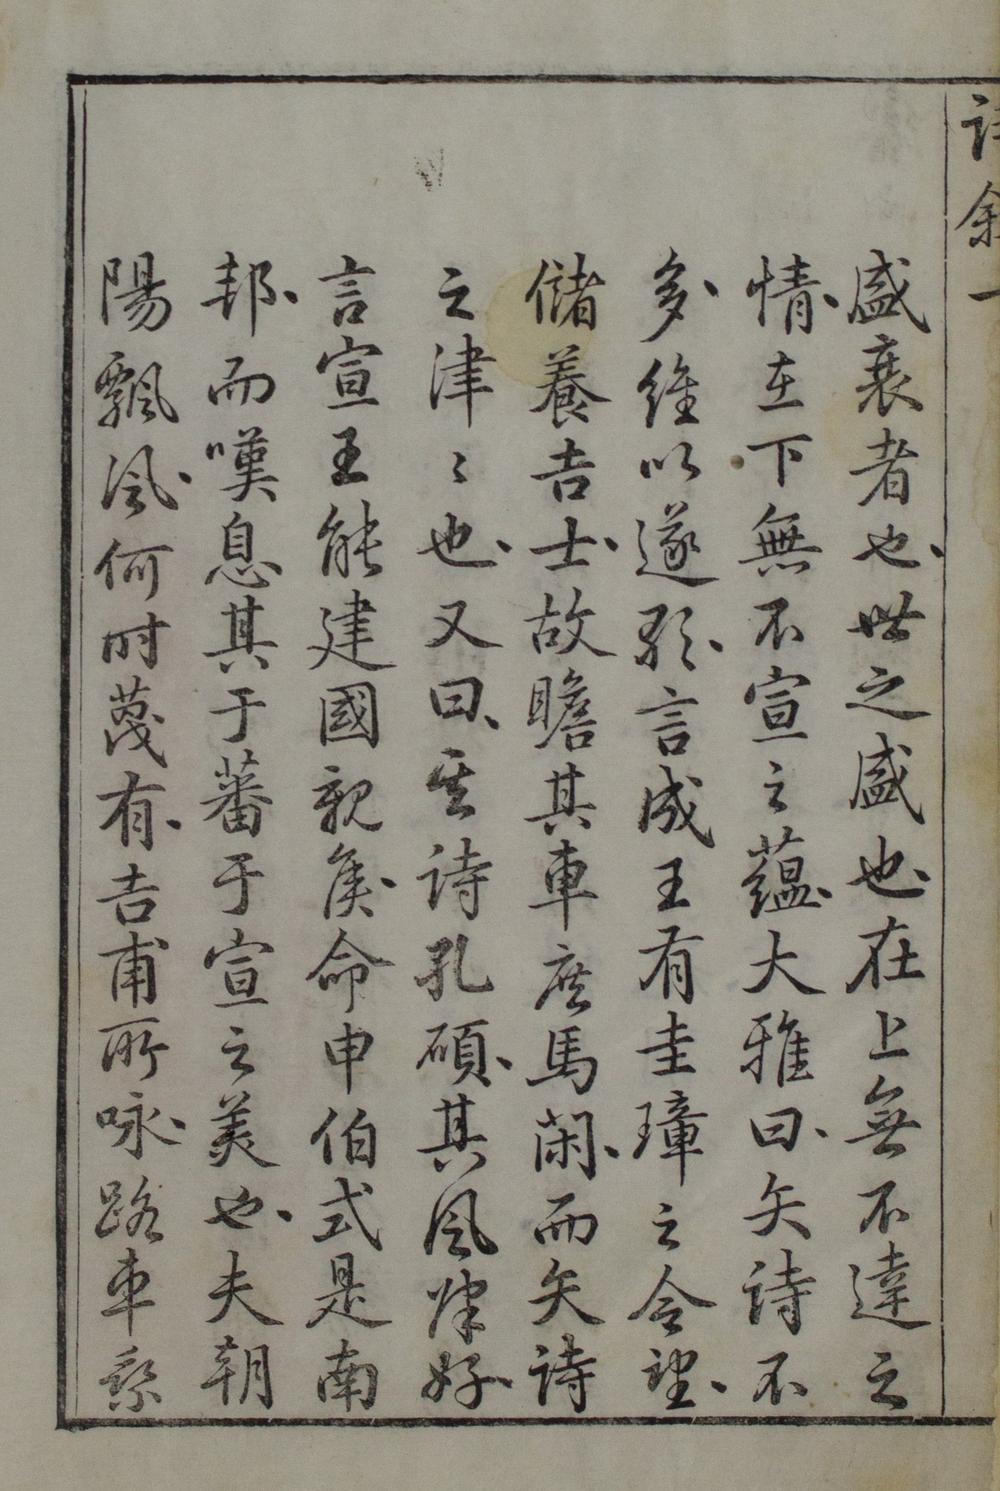 詩敘一
盛衰者也世之盛也在上無不達之
情在下無不宣之蘊大雅曰矢詩不
多維以遂歌言成王有圭璋之令望
儲養吉士故瞻其車庶馬閑而矢詩
之津〻也又曰其詩孔碩其風肆好
言宣王能建國親侯命申伯式是南
邦而嘆息其于蕃于宣之美也夫朝
陽飄風何时蔑有吉甫所咏路車乘